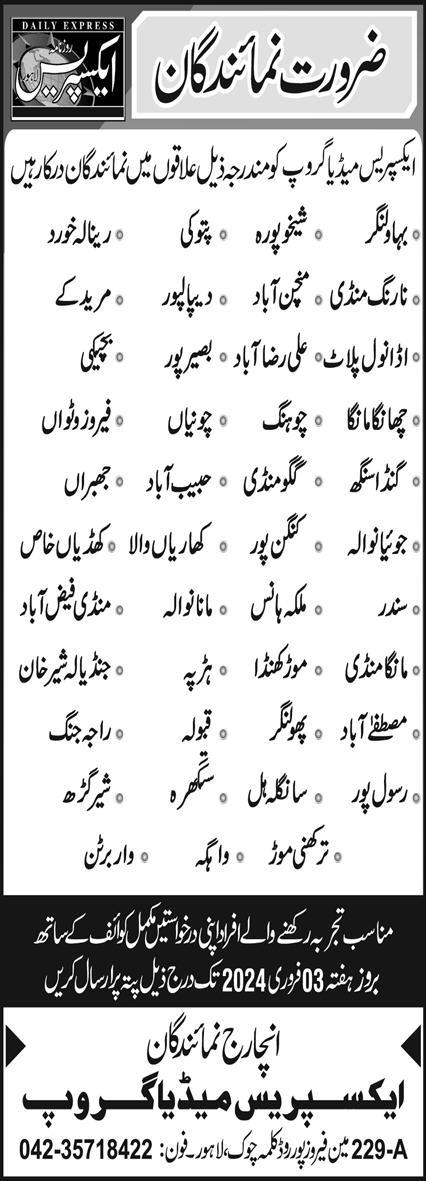 DAILY EXPRESS
روزنامہ
ایکسپریس
لاہور
ضرورت نمائندگان
ایکسپریس میڈیا گروپ کو مندرجہ ذیل علاقوں میں نمائندگان درکار ہیں
• بہاولنگر • شیخوپورہ • پتوکی • رینالہ خورد
• نارنگ منڈی • منچن آباد • دیپالپور • مریدکے
• اڈا نول پلاٹ • علی رضا آباد • بصیر پور • بچیکی
• چھانگا مانگا • چوہنگ • چونیاں • فیروز وٹواں
• گنڈا سنگھ • گگو منڈی • حبیب آباد • جھبراں
• جوئیانوالہ • کنگن پور • کھاریاں والا • کھڈیاں خاص
• سندر • ملکہ ہانس • مانانوالہ • منڈی فیض آباد
• مانگا منڈی • موڑ کھنڈا • ہڑپہ • جنڈیالہ شیر خان
• مصطفےٰ آباد • پھولنگر • قبولہ • راجہ جنگ
• رسول پور • سانگلہ ہل • ستگھرہ • شیر گڑھ
• ترکھنی موڑ • واہگہ • واربرٹن
مناسب تجربہ رکھنے والے افراد اپنی درخواستیں مکمل کوائف کے ساتھ
بروز ہفتہ 03 فروری 2024 تک درج ذیل پتہ پر ارسال کریں
انچارج نمائندگان
ایکسپریس میڈیا گروپ
229-A مین فیروز پور روڈ کلمہ چوک، لاہور۔ فون: 042-35718422